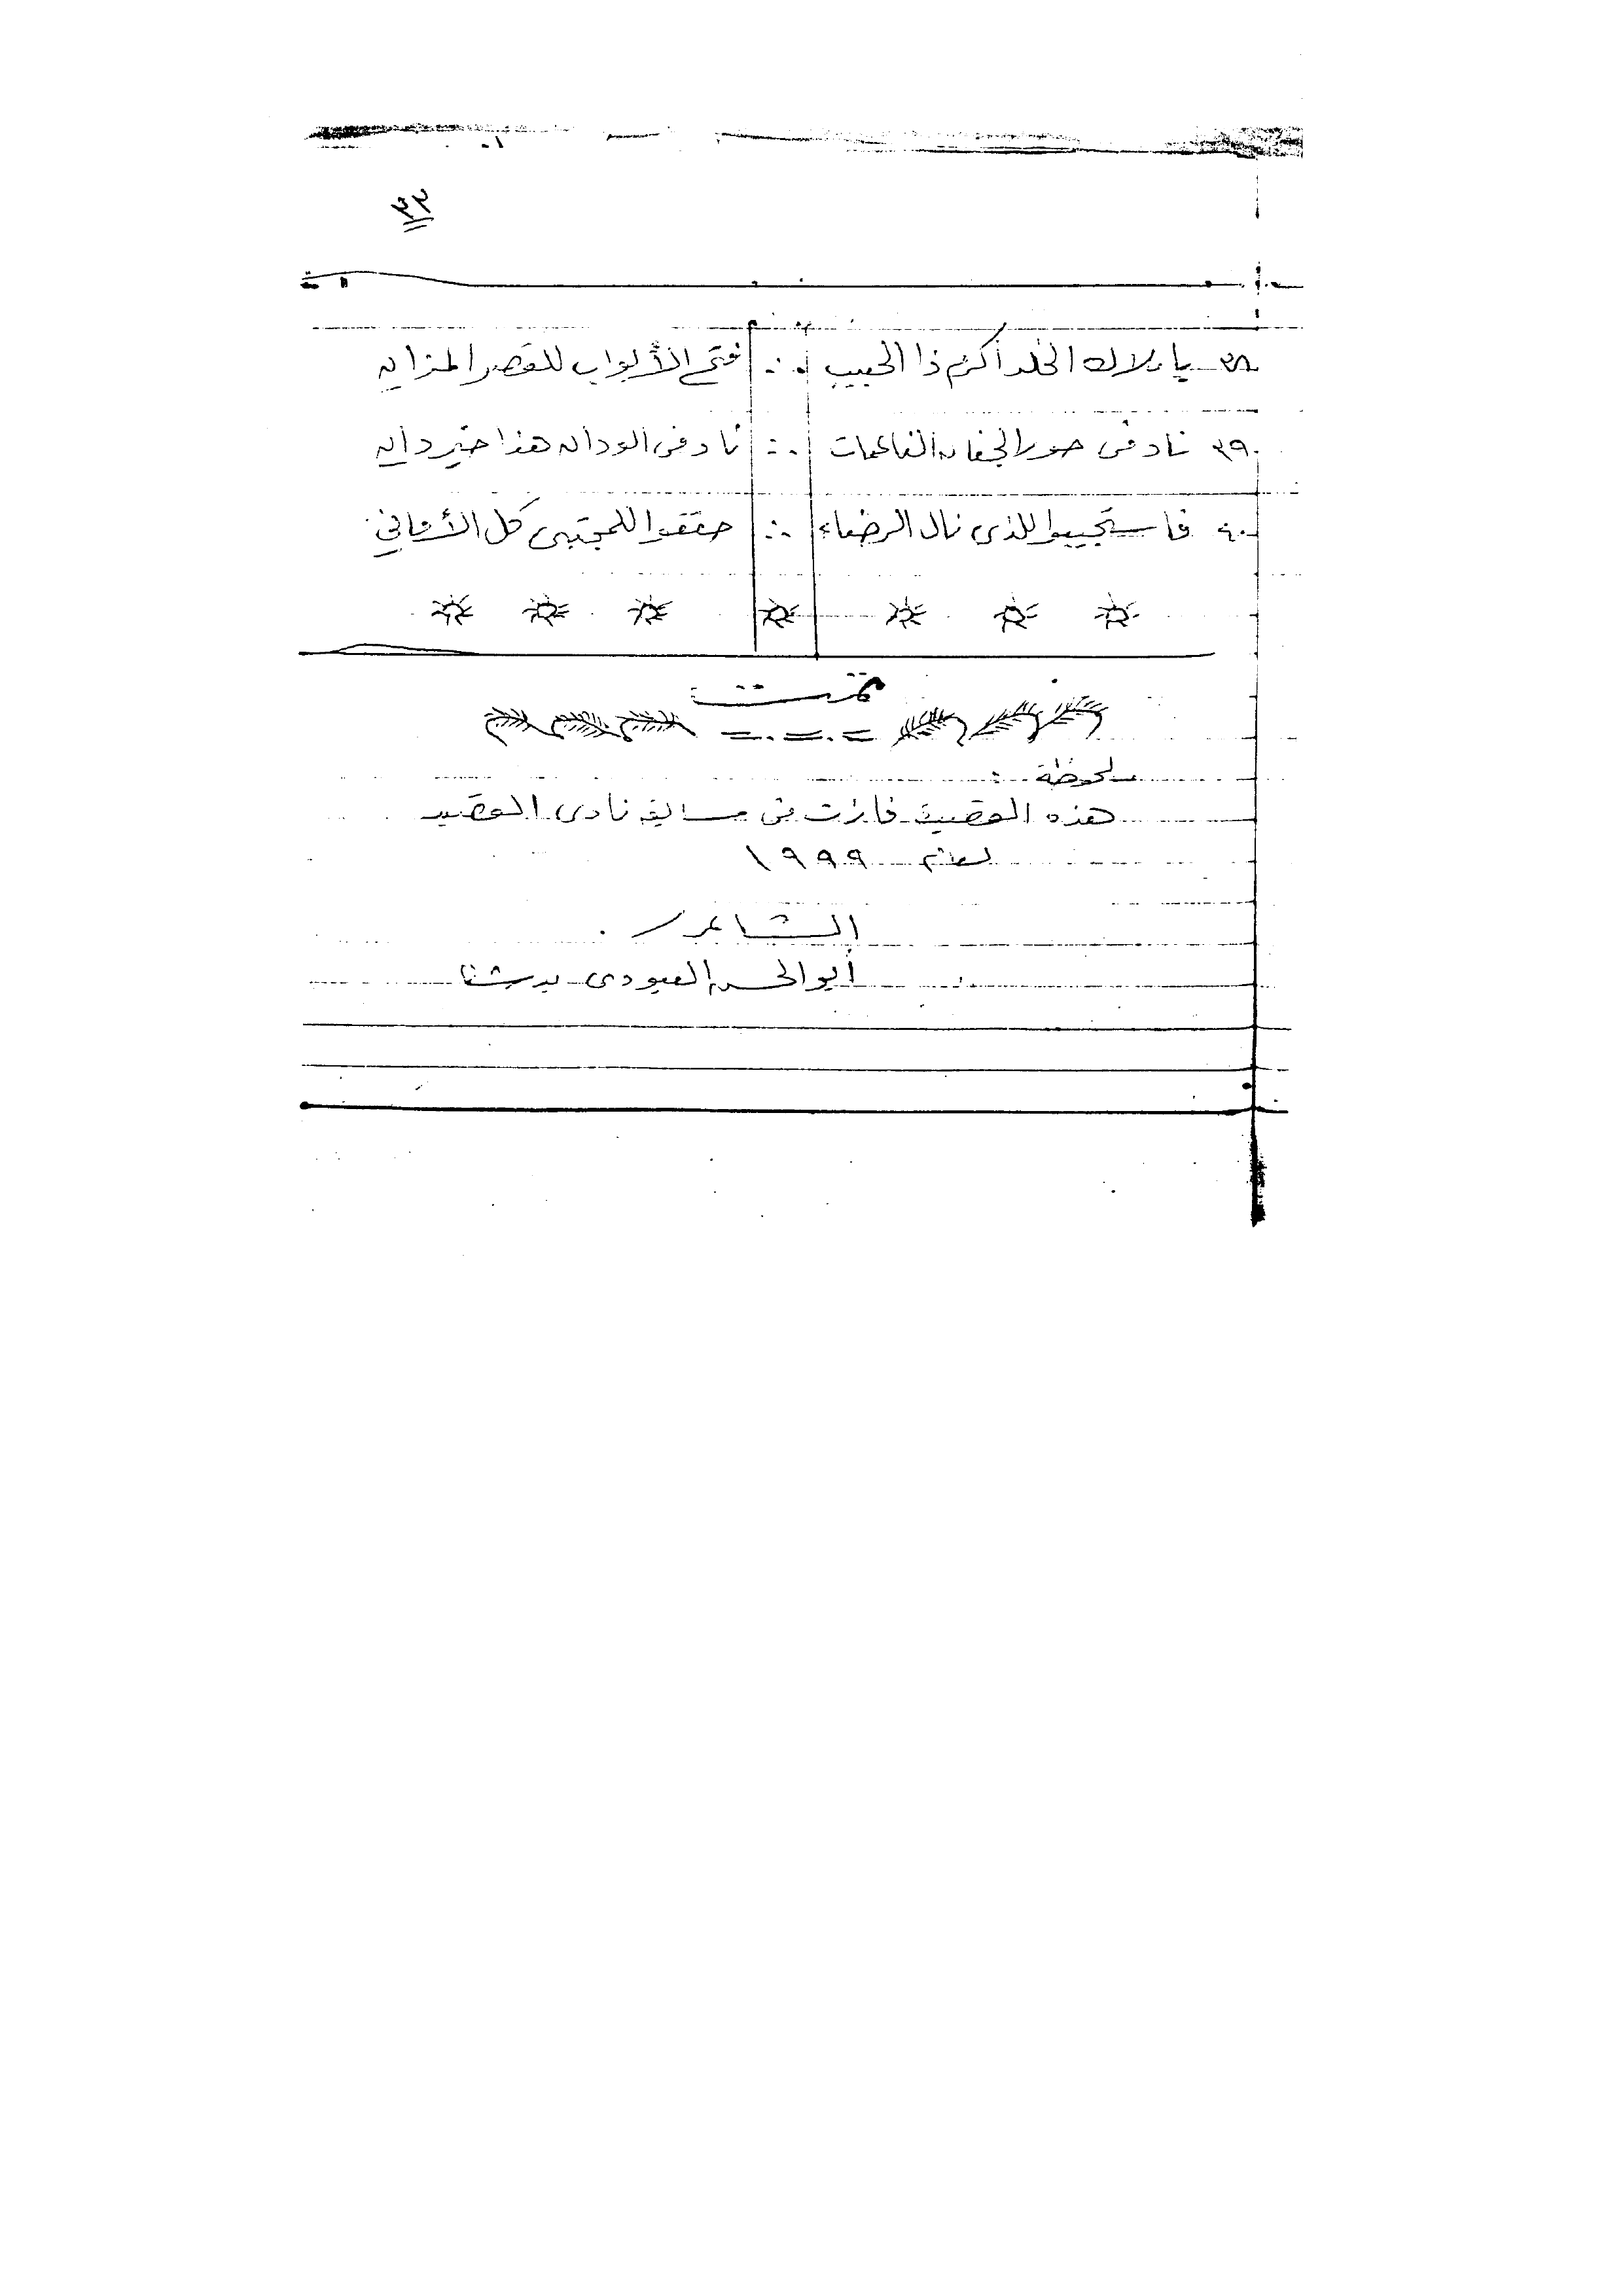 ٣٣
٣٨- يا ملاك الخلد أكرم ذا الحبيب ∴ فتح الأبواب للقصر المزان
٣٩- ناد فى حور الجفان الناعمات ∴ ناد فى الودان هذا خير دان
٤٠- فاستجيبوا للذى نال الرضاء ∴ حققوا للمجتبى كل الأماني
تمت
ملحوظة :
هذه القصيدة فازت فى مسابقة نادى القصيد
لعام ١٩٩٩
الشاعر /
أبو الحسن العبودى